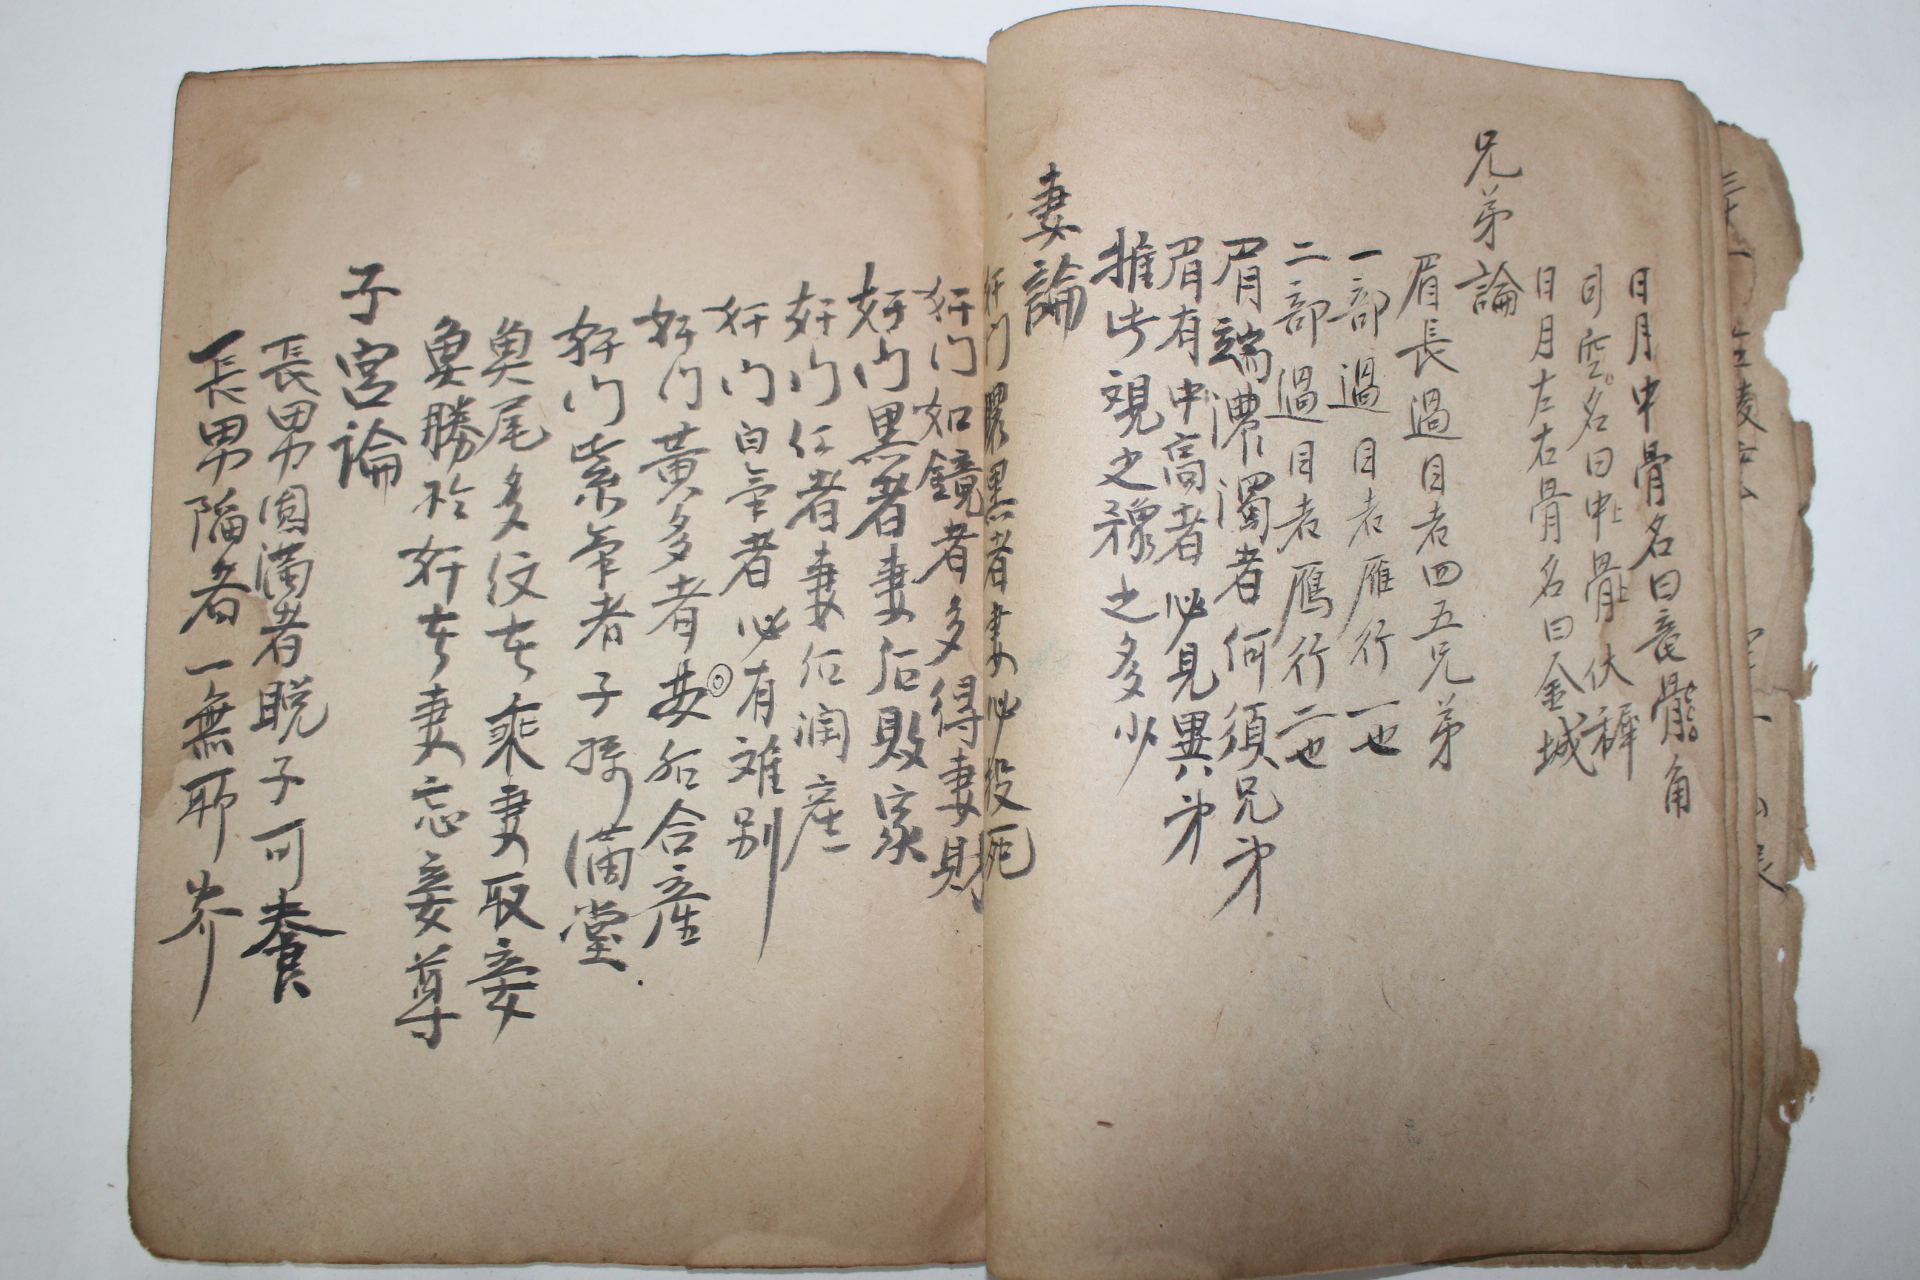 日月中骨名曰龍角
司空名曰中骨伏犀
日月左右骨名曰金城
兄弟論
眉長過目者四五兄弟
一部過目者雁行一也
二部過目者鴈行二也
眉端濃濁者何須兄弟
眉有中高者必見異弟
推此視之爲之多少
妻論
奸门黑者妻必役死
奸门如鏡者多得妻財
奸门黑者妻后敗家
奸门仁者妻后潤産
奸门白気者必有难别
奸门黃多者妻后合産
奸门紫気者子孫滿堂
奐尾多紋者乘妻取妾
奐勝於奸者妻忘妾尊
子宮論
長男圓滿者晩子可養
長男陥者一無耶